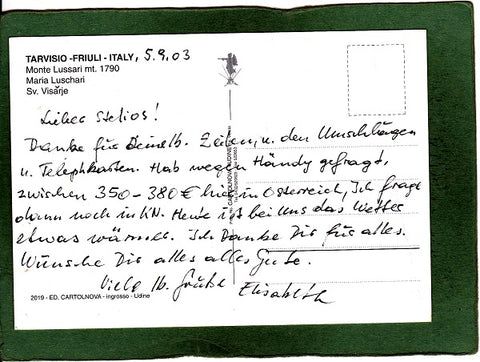 TARVISIO - FRIULI - ITALY, 5.9.03
Monte Lussari mt. 1790
Maria Luschari
Sv. Visarje
Lieber Stelios!
Danke für Deine lb. Zeilen, u. den Umschlägen
u. Telephkarten. Hab wegen Händy gefragt,
zwischen 350-380 € hier in Österreich, Ich frage
dann noch in VN. Heute ist bei uns das Wetter
etwas wärmer. Ich Danke Dir für alles.
Wünsche Dir alles alles Gute.
Viele lb. Grüße
Elisabeth
2019 - ED. CARTOLNOVA - ingrosso - Udine